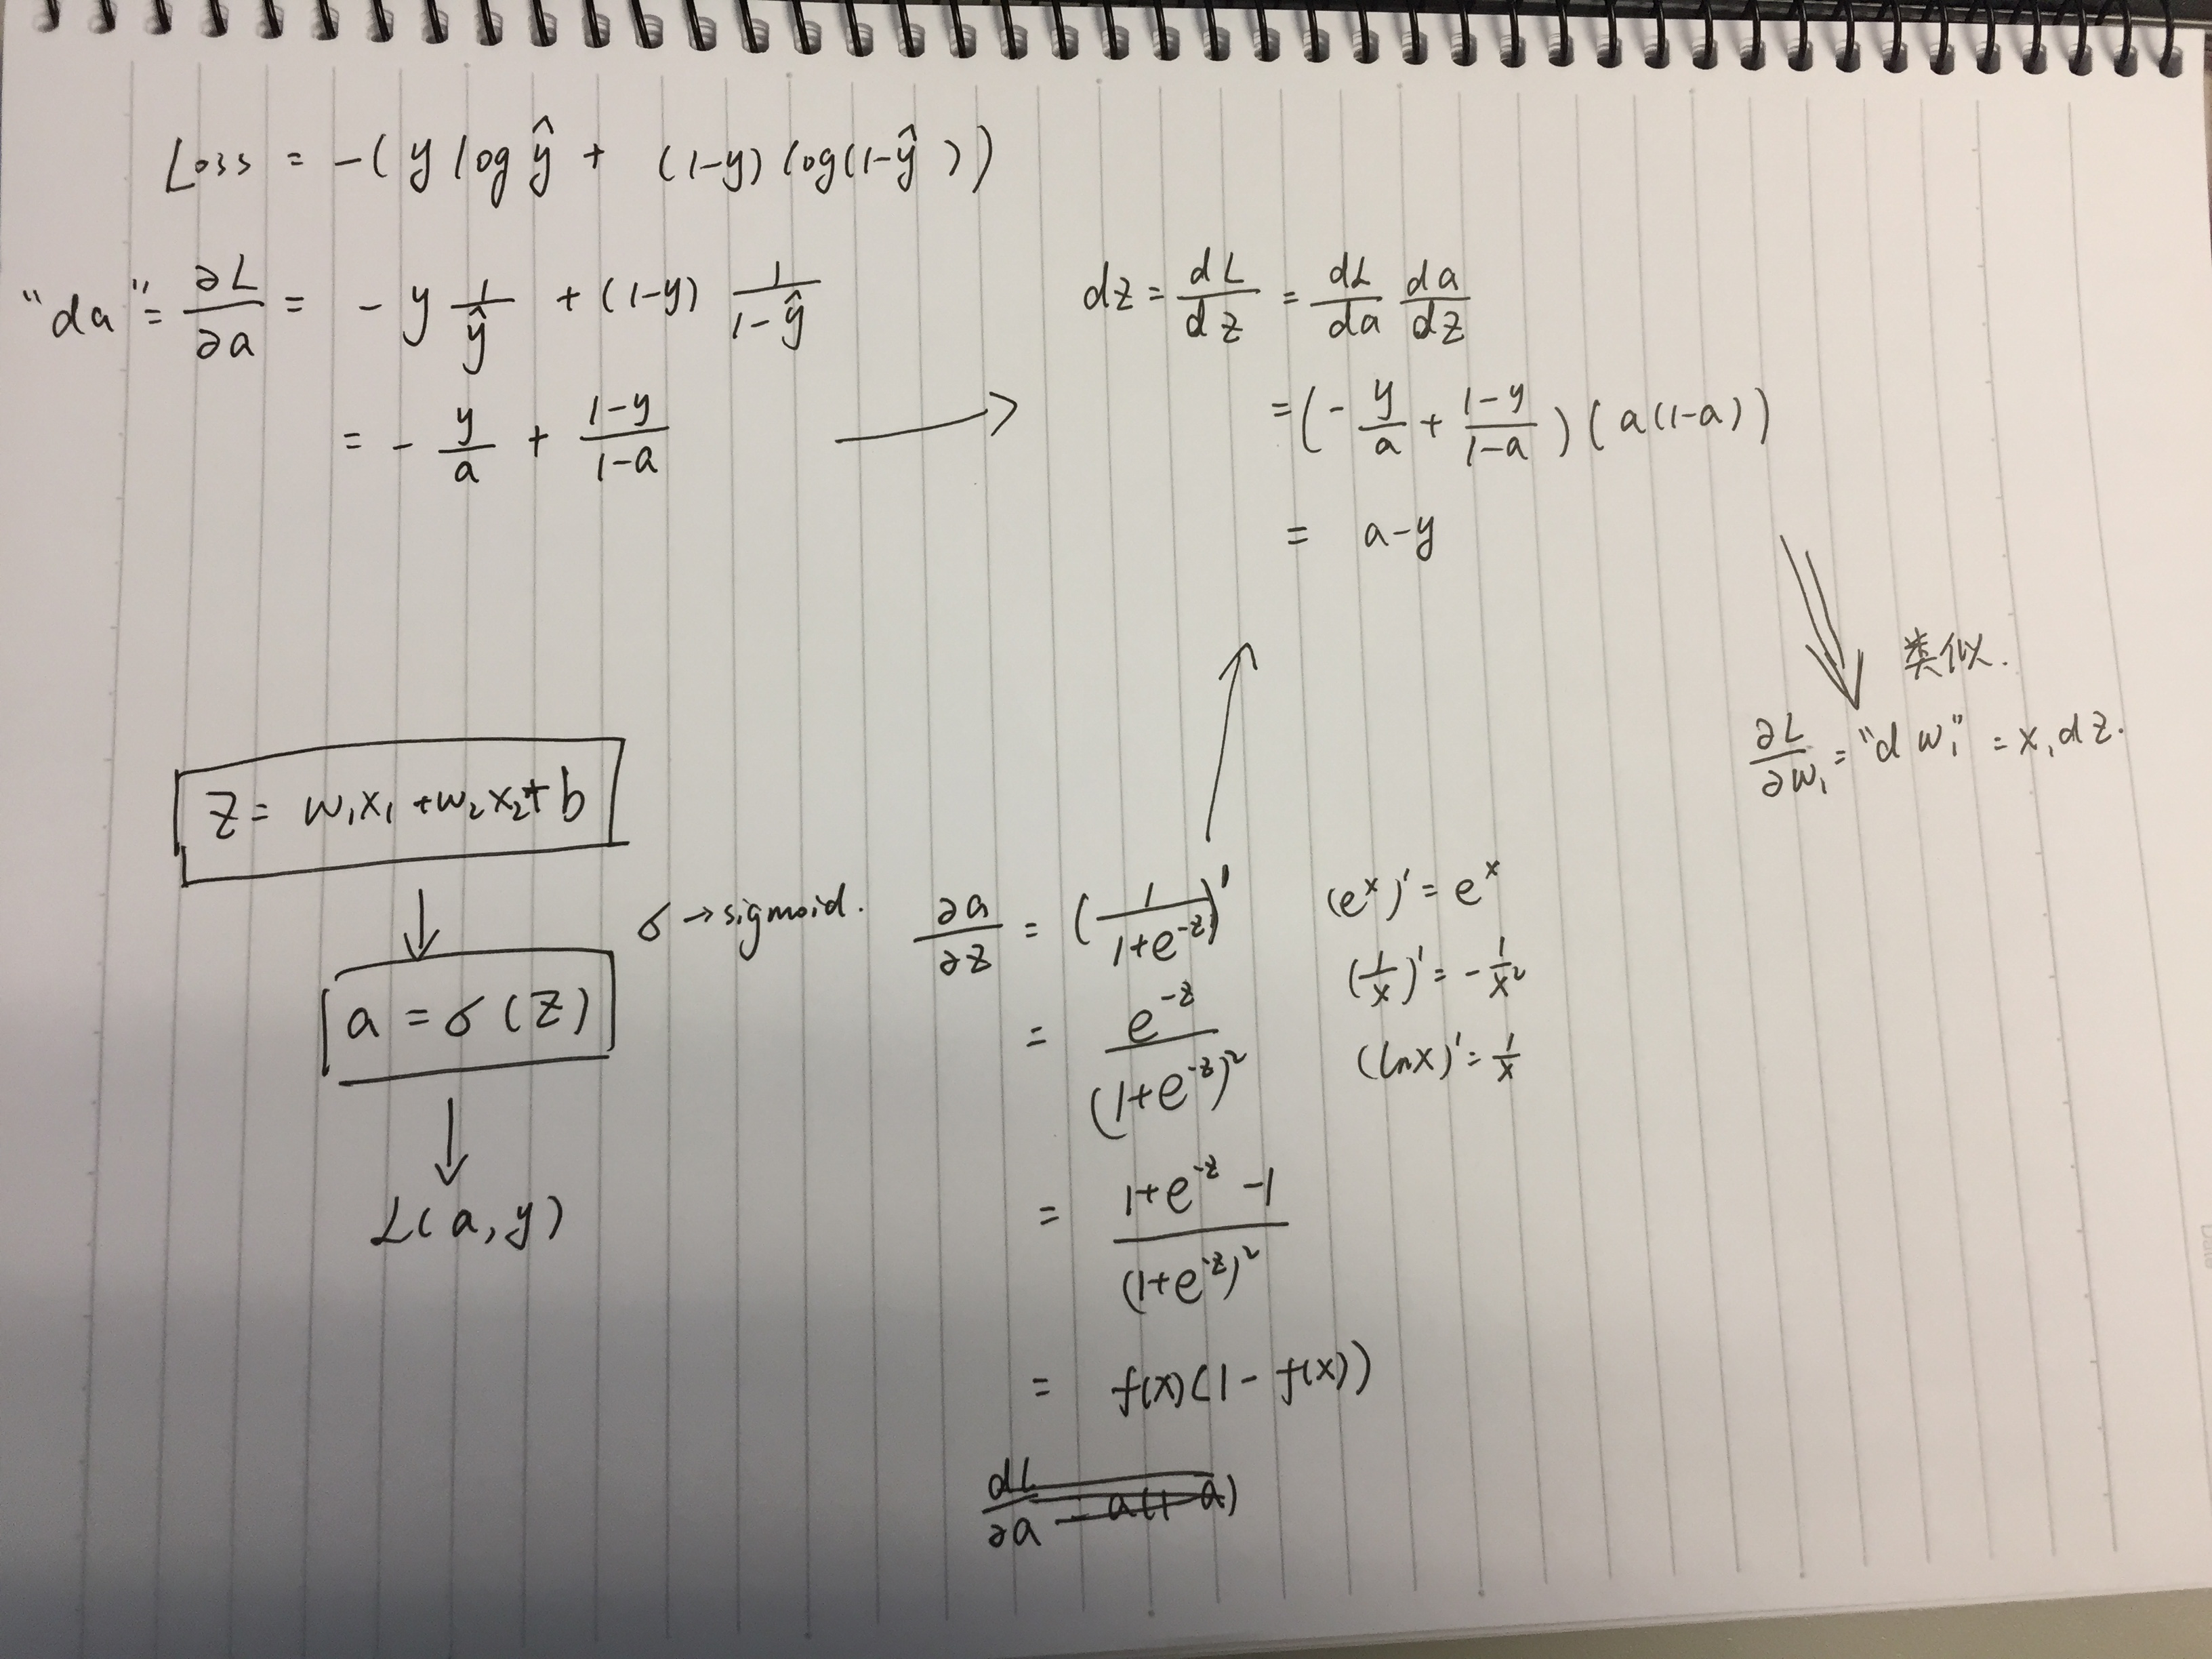 Loss = -(y log ŷ + (1-y) log(1-ŷ))
"da" = ∂L/∂a = -y 1/ŷ + (1-y) 1/(1-ŷ)
= - y/a + (1-y)/(1-a)
dz = dL/dz = dL/da da/dz
= (- y/a + (1-y)/(1-a)) (a(1-a))
= a-y
类似.
∂L/∂w₁ = "dw₁" = x₁dz.
z = w₁x₁ + w₂x₂ + b
a = σ(z)
σ → sigmoid.
L(a, y)
∂a/∂z = (1/(1+e^-z))'
= e^-z/(1+e^-z)²
= (1+e^-z -1)/(1+e^-z)²
= f(x)(1- f(x))
(e^x)' = e^x
(1/x)' = - 1/x²
(lnx)' = 1/x
dL/∂a = a(1-a)